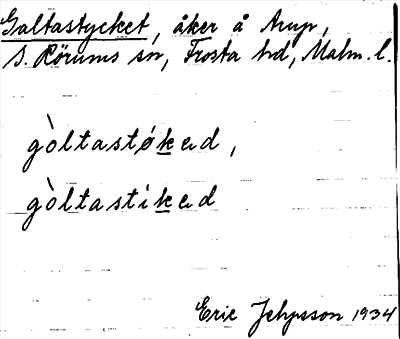 Galtastycket, åker å Arup,
S. Rörums sn, Frosta hd, Malm. l.
gòltastøked,
gòltastiked
Eric Jepsson 1934